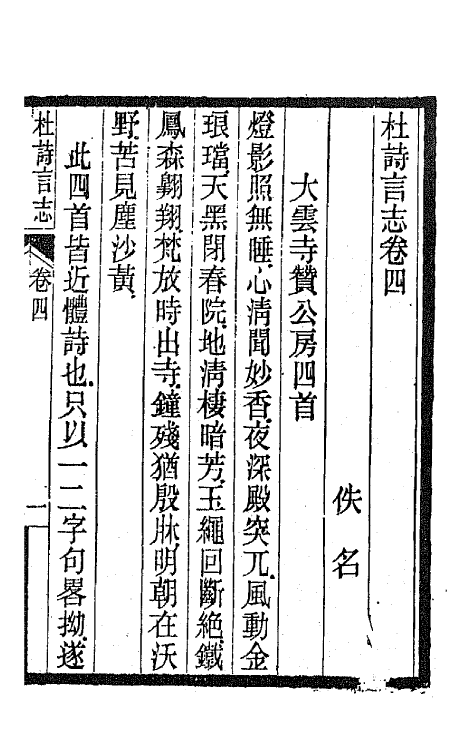 杜詩言志卷四
佚名
大雲寺贊公房四首
燈影照無睡心清聞妙香夜深殿突兀風動金
琅璫天黑閉春院地清棲暗芳玉繩回斷絕鐵
鳳森翱翔梵放時出寺鐘殘猶殷牀明朝在沃
野苦見塵沙黃
此四首皆近體詩也只以一二字句畧拗遂
杜詩言志
卷四
一